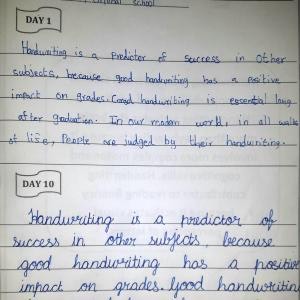 , External school
DAY 1
Handwriting is a predictor of success in other
subjects, because good handwriting has a positive
impact on grades. Good handwriting is essential long
after graduation. In our modern world, in all walks
of life, People are judged by their handwriting.
DAY 10
Handwriting is a predictor of
success in other subjects, because
good handwriting has a positive
impact on grades. Good handwriting